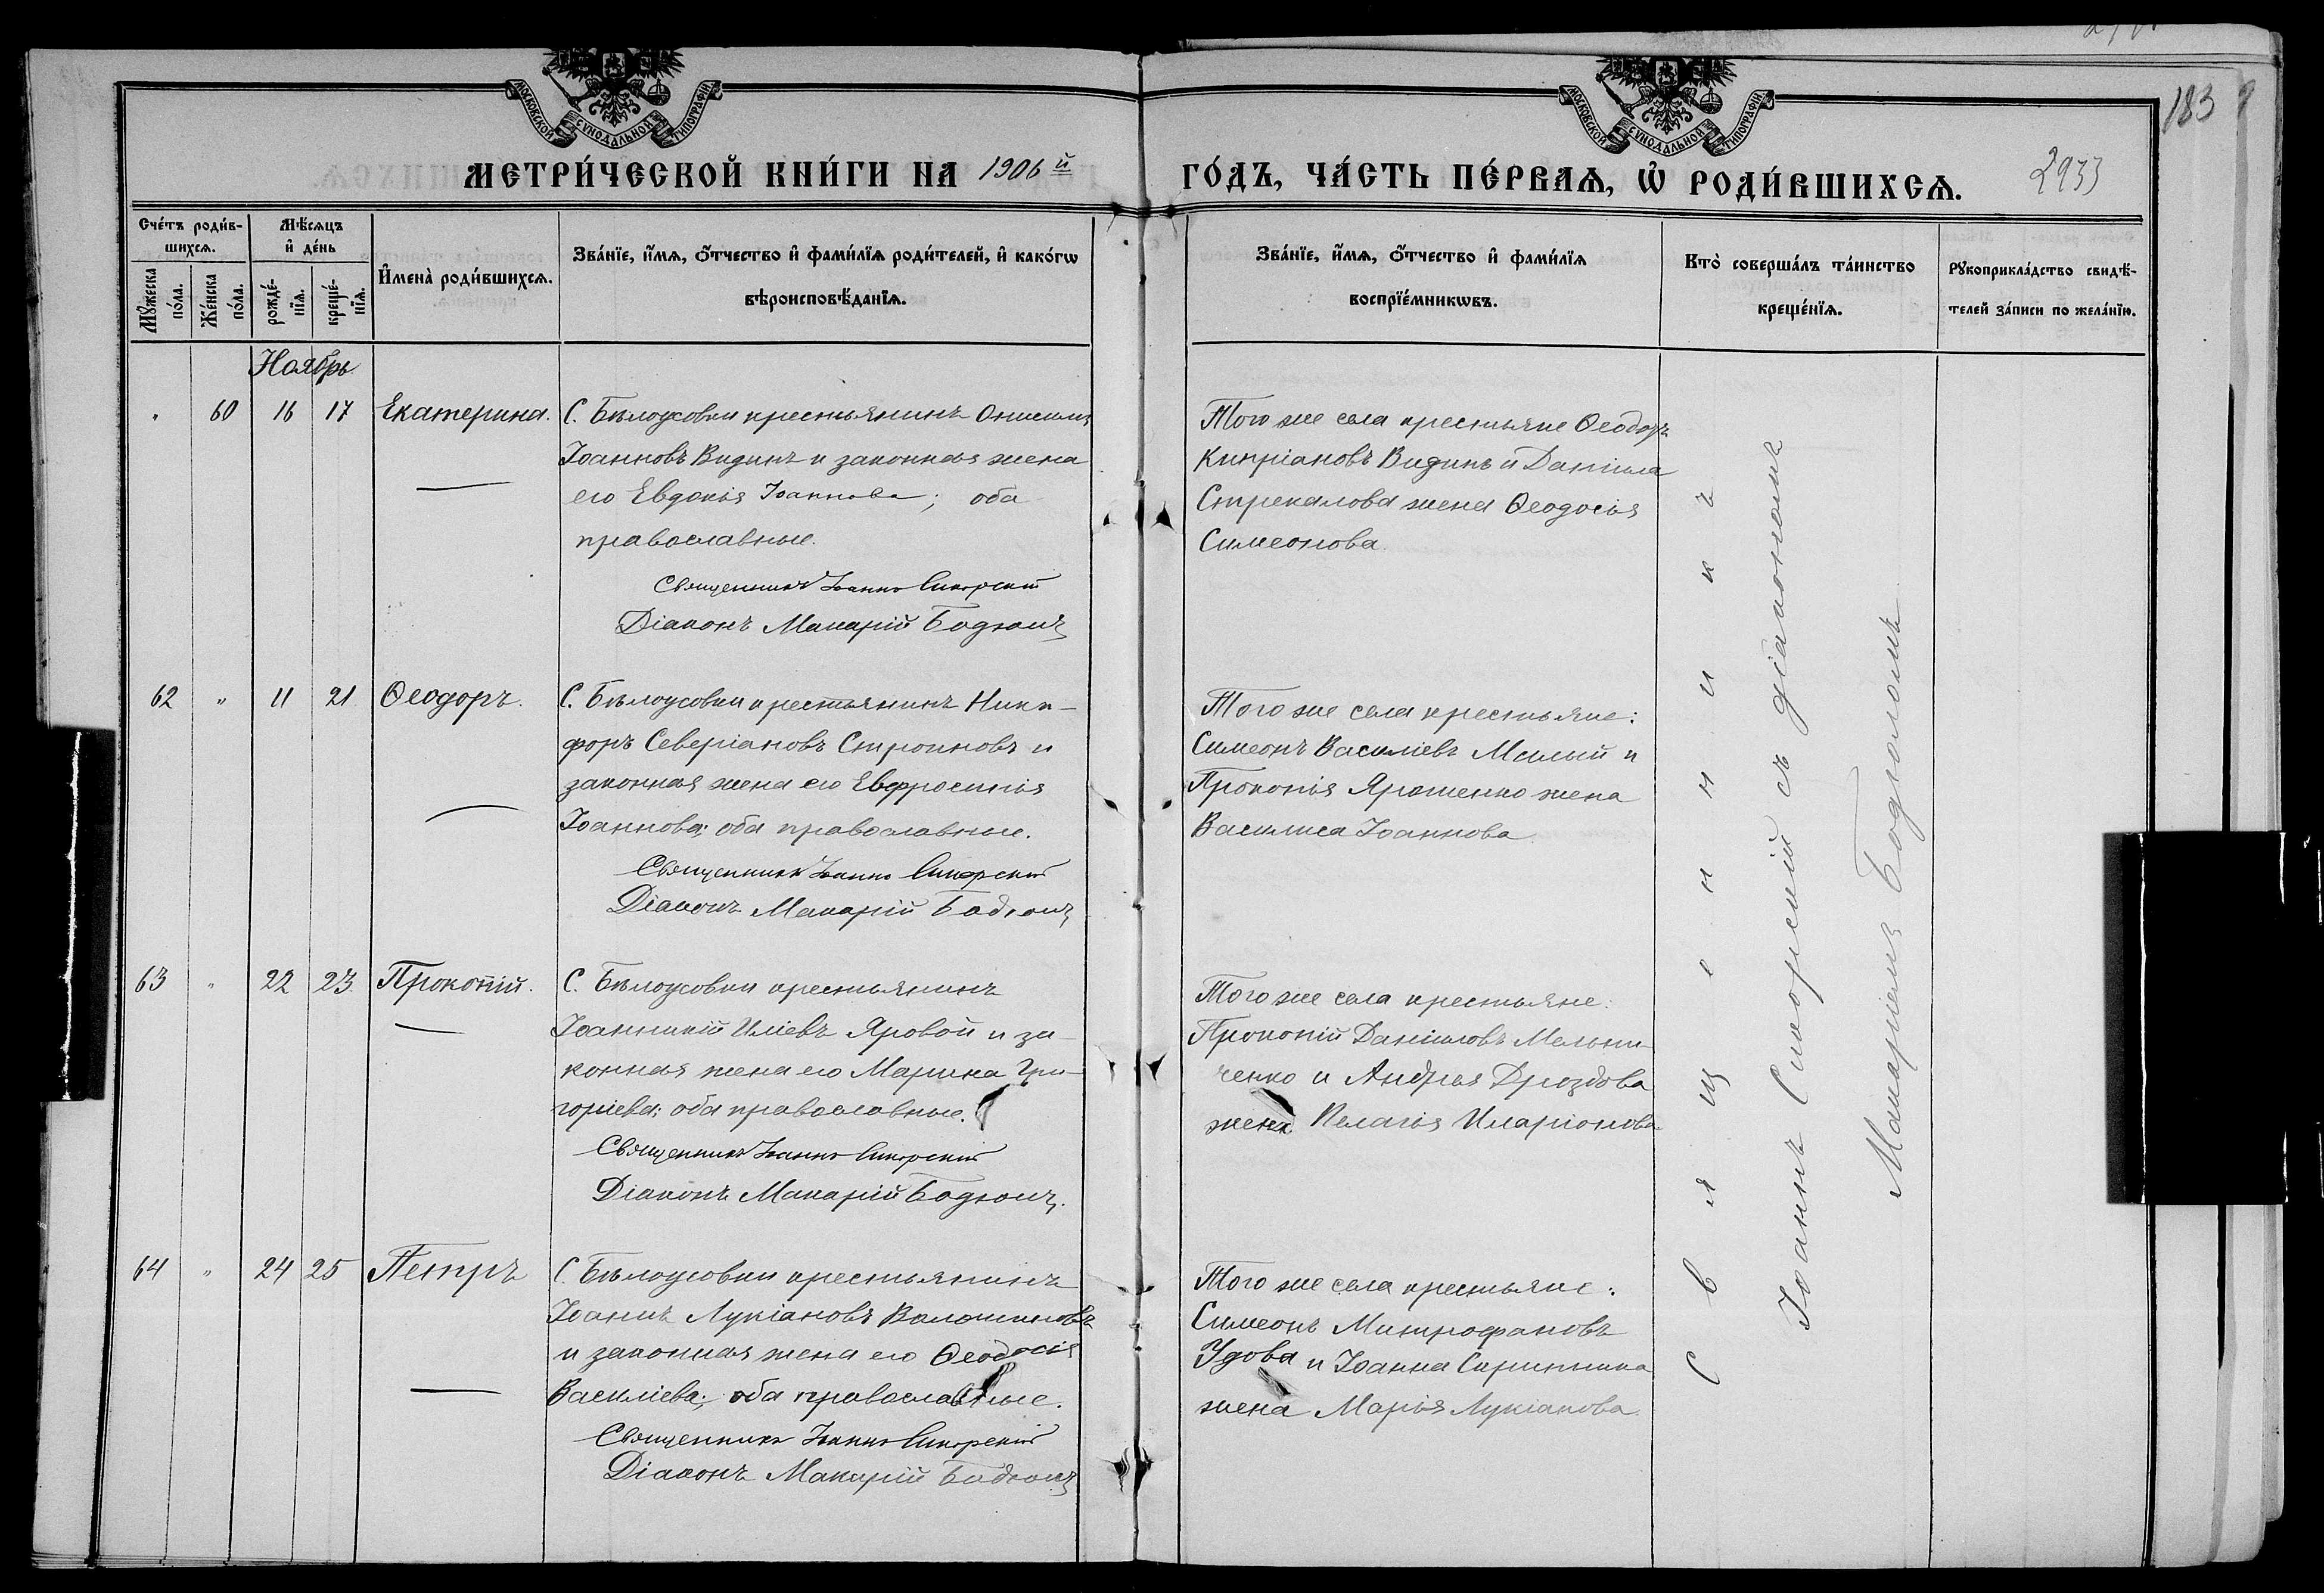 183
МОСКОВСКОЙ СѴНОДАЛЬНОЙ ТИПОГРАФІИ
МОСКОВСКОЙ СѴНОДАЛЬНОЙ ТИПОГРАФІИ
МЕТРИ́ЧЕСКОЙ КНИ́ГИ НА 1906й ГО́ДЪ, ЧА́СТЬ ПЕ́РВАѦ, Ѡ҆ РОДИ́ВШИХСѦ.
2933
Сче́тъ роди́в-
шихсѧ.
Мꙋ́жеска по́ла.
Же́нска по́ла.
Мѣ́сѧцъ
и҆ де́нь
рожде́-
нїѧ.
креще́-
нїѧ.
И҆мена̀ роди́вшихсѧ.
Зва́нїе, и҆́мѧ, ѻ҆́тчество и҆ фами́лїѧ роди́телей, и҆ како́гѡ
вѣроисповѣ́данїѧ.
Зва́нїе, и҆́мѧ, ѻ҆́тчество и҆ фами́лїѧ
воспрїе́мникѡвъ.
Кто̀ соверша́лъ та́инство
креще́нїѧ.
Рꙋкоприкла́дство свидѣ́-
телей за́писи по жела́нїю.
Ноябрь
" 60 16 17 Екатерина.
С. Бѣлоусовки крестьянинъ Онисимъ
Іоанновъ Видинъ и законная жена
его Евдокія Іоаннова; оба
православные.
Священникъ Іоаннъ Сикорскій
Діаконъ Макарій Богуюлъ
Того же села крестьяне Ѳеодоръ
Кипріановъ Видинъ и Даніила
Стрекалова жена Ѳеодосія
Симеонова.
62 " 11 21 Ѳеодоръ.
С. Бѣлоусовки крестьянинъ Ники-
форъ Северіановъ Строиновъ и
законная жена его Евфросинія
Іоаннова; оба православные.
Священникъ Іоаннъ Сикорскій
Діаконъ Макарій
Того же села крестьяне:
Симеонъ Василіевъ Малый и
Прокопія Ярошенко жена
Василиса Іоаннова
63 " 22 23 Прокопій.
С. Бѣлоусовки крестьянинъ
Іоанникій Иліевъ Яровой и за-
конная жена его Марина Гри-
горіева; оба православные.
Священникъ Іоаннъ Сикорскій
Діаконъ Макарій
Того же села крестьяне:
Прокопій Даніиловъ Мельни-
ченко и Андрея Дроздова
жена Пелагія Иларіонова.
64 " 24 25 Петръ
С. Бѣлоусовки крестьянинъ
Іоаннъ Лукіановъ Волошиновъ
и законная жена его Ѳеодосія
Василіева; оба православные.
Священникъ Іоаннъ Сикорскій
Діаконъ Макарій
Того же села крестьяне:
Симеонъ Митрофановъ
Удова и Іоанна Скрипника
жена Марія Лукіанова.
Священникъ
Іоаннъ Сикорскій съ діакономъ
Макаріемъ